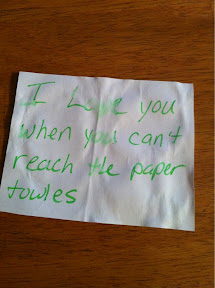 I Love you
when you can't
reach the paper
towles